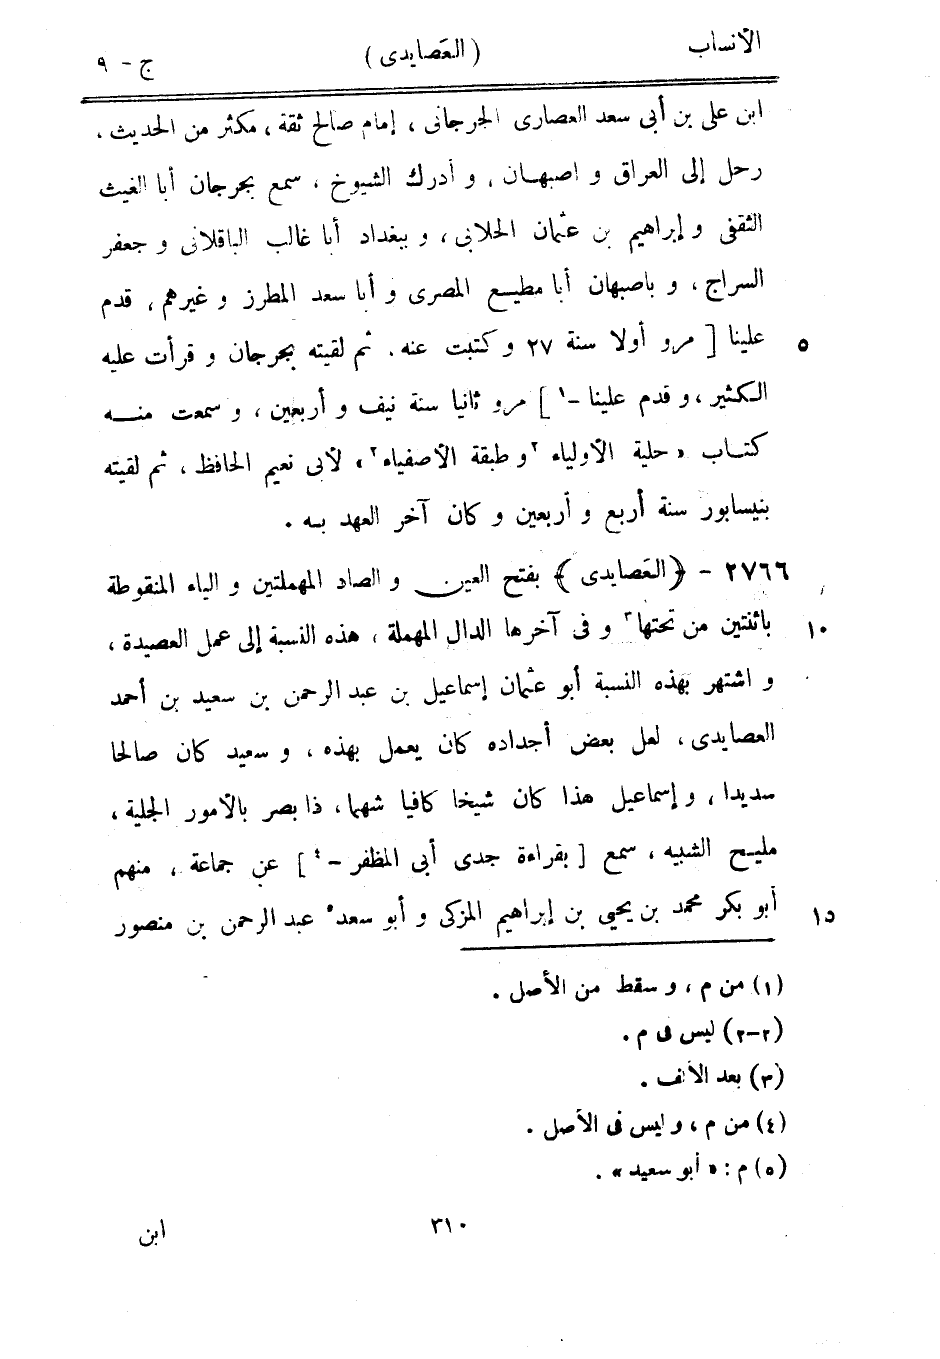 الأنساب ( العَصايدى ) ج - ٩
ابن على بن أبى سعد العصارى الجرجانى ، إمام صالح ثقة ، مكثر من الحديث ،
رحل إلى العراق و اصبهان ، و أدرك الشيوخ ، سمع بجرجان أبا الغيث
الثقفى و إبراهيم بن عثمان الخلابى ، و ببغداد أبا غالب الباقلانى و جعفر
السراج ، و باصبهان أبا مطيع المصرى و أبا سعد المطرز و غيرهم ، قدم
علينا [ مرو أولا سنة ٢٧ و كتبت عنه . ثم لقيته بجرجان و قرأت عليه ٥
الكثير ، و قدم علينا -١ ] مرو ثانيا سنة نيف و أربعين ، و سمعت منه
كتاب « حلية الأولياء ٢ و طبقة الأصفياء ٢ » لأبى نعيم الحافظ ، ثم لقيته
بنيسابور سنة أربع و أربعين و كان آخر العهد به .
٢٧٦٦ - ﴿ العَصايدى ﴾ بفتح العين و الصاد المهملتين و الياء المنقوطة
باثنتين من تحتها ٣ و فى آخرها الدال المهملة ، هذه النسبة إلى عمل العصيدة ، ١٠
و اشتهر بهذه النسبة أبو عثمان إسماعيل بن عبد الرحمن بن سعيد بن أحمد
العصايدى ، لعل بعض أجداده كان يعمل بهذه ، و سعيد كان صالحا
سديدا ، و إسماعيل هذا كان شيخا كافيا شهما ، ذا بصر بالأمور الجلية ،
مليح الشبيه ، سمع [ بقراءة جدى أبى المظفر - ٤ ] عن جماعة ، منهم
أبو بكر محمد بن يحيى بن إبراهيم المزكى و أبو سعد ٥ عبد الرحمن بن منصور ١٥
(١) من م ، و سقط من الأصل .
(٢-٢) ليس فى م .
(٣) بعد الألف .
(٤) من م ، و ليس فى الأصل .
(٥) م : « أبو سعيد » .
٣١٠ ابن